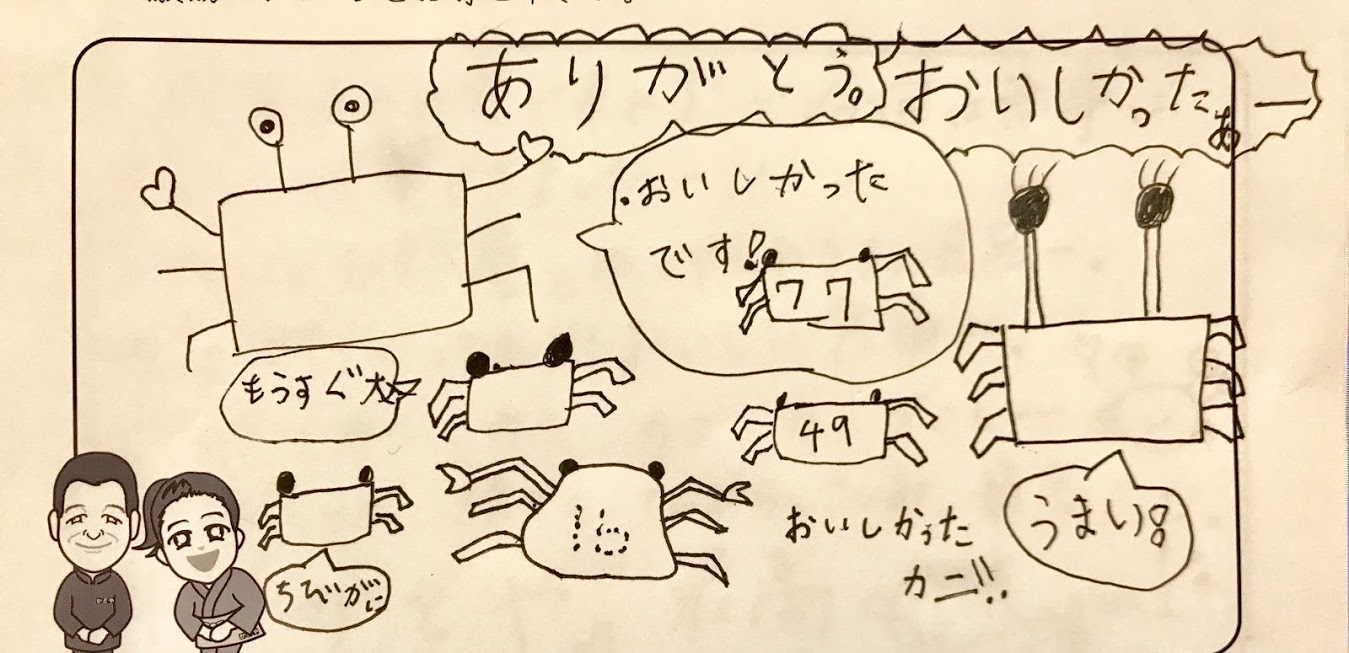 ありがとう。
おいしかったぁー
・おいしかった
です!
77
もうすぐ大
49
16
おいしかった
カニ!!
うまい!
ちびがに